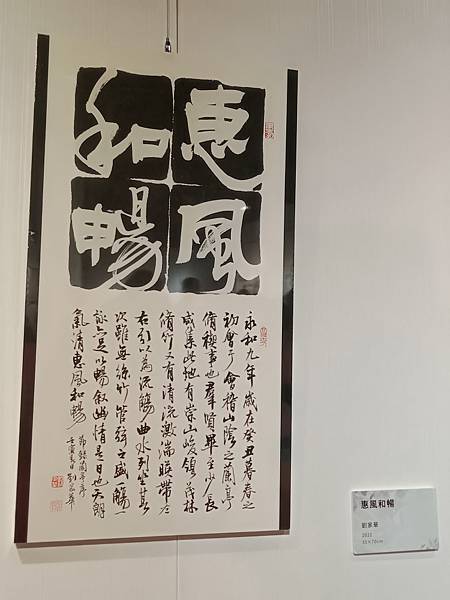 惠風
和暢
永和九年歲在癸丑暮春之
初會于會稽山陰之蘭亭
脩稧事也羣賢畢至少長
咸集此地有崇山峻領茂林
脩竹又有清流激湍暎帶左
右引以為流觴曲水列坐其
次雖無絲竹管絃之盛一觴一
詠亦足以暢敘幽情是日也天朗
氣清惠風和暢
節錄蘭亭序
壬寅春日劉
惠風和暢
劉 華
2022
70cm